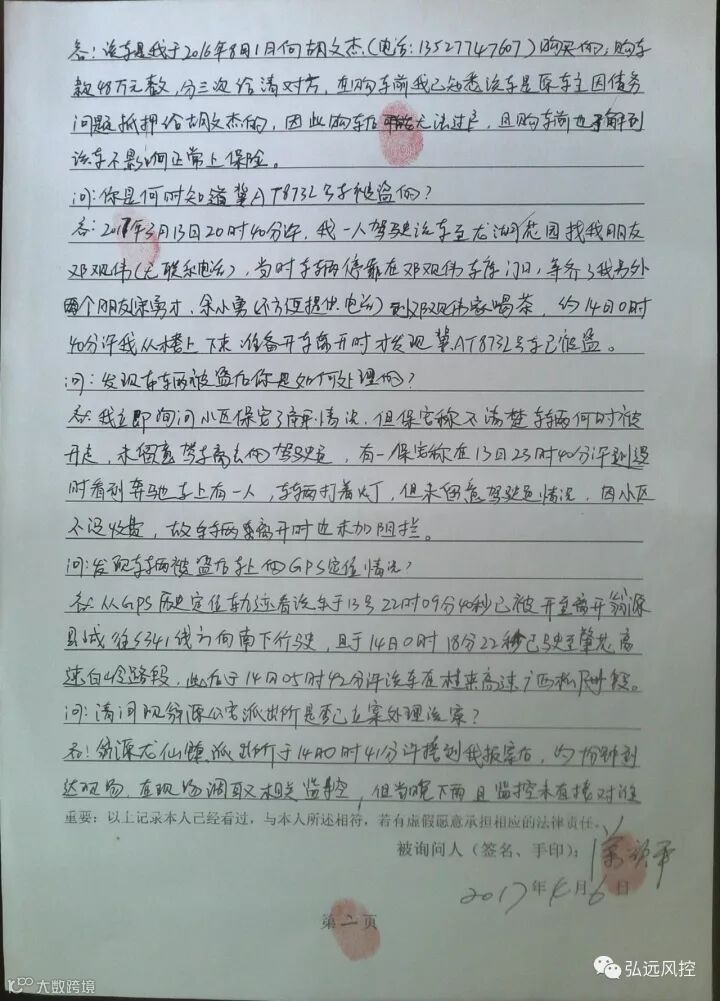 答:该车是我于2016年8月1日向胡文杰(电话:13527747607)购买的,购车
款48万元整,分三次给清对方,在购车前我已知悉该车是原车主因债务
问题抵押给胡文杰的,因此购车后可能无法过户,且购车前也了解到
该车不影响正常上保险。
问:你是何时知道冀AT873L号车被盗的?
答:2017年3月13日20时40分许,我一人驾驶该车至龙湖花园找我朋友
邓观伟(无联系电话),当时车辆停靠在邓观伟车库门口,等齐了我另外
两个朋友宋勇才、余小勇(不方便提供电话)到邓观伟家喝茶,约14日0时
40分许我从楼上下来准备开车离开时才发现冀AT873L号车已被盗。
问:发现车辆被盗后你是如何处理的?
答:我立即询问小区保安了解情况,但保安称不清楚车辆何时被
开走,未留意驾车离去的驾驶员,有一保安称在13日23时40分许到过
时看到奔驰车上有一人,车辆打着灯,但未留意驾驶员情况,因小区
不设收费,故车辆离开时也未加阻拦。
问:发现车辆被盗后车上的GPS定位情况?
答:从GPS历史定位轨迹看该车于13号22时09分40秒已被开至离开翁源
县城往S341线方向南下行驶,且于14日0时18分22秒已驶至肇花高
速白岭路段,此后于14日05时42分许该车在桂来高速广西段。
问:请问现翁源公安派出所是否已立案处理该案?
答:翁源龙仙镇派出所于14日0时41分许接到我报案后,约10分钟到
达现场,在现场调取相关监控,但当晚下雨且监控未直接对准
重要:以上记录本人已经看过,与本人所述相符,若有虚假愿意承担相应的法律责任。
被询问人(签名、手印):
2017年4月6日
第二页
弘远风控
大数跨境